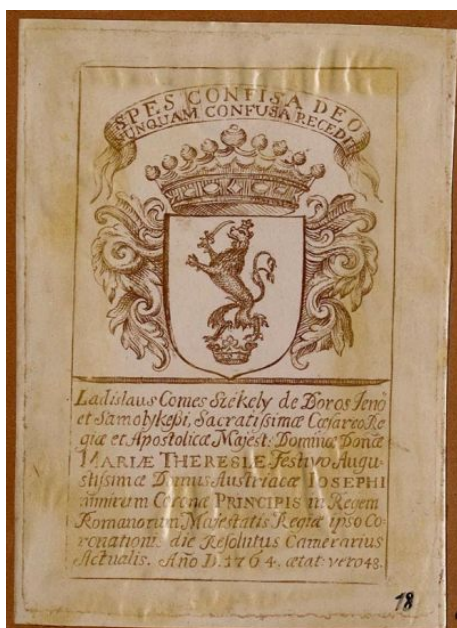 SPES CONFISA DEO
NUNQUAM CONFUSA RECEDIT
Ladislaus Comes Székely de Boros Jenö
et Samolykeßi, Sacratissimæ CæsareoRe
giæ et Apostolicæ Majest: Dominæ Donæ
MARIÆ THERESIÆ Festivo Augu-
stissimæ Domus Austriacæ IOSEPHI
nimirum Coronæ PRINCIPIS in Regem
Romanorum Majestatis Regiæ ipso Co-
ronationis die Resolutus Camerarius
Actualis. Año D. 1764. ætat: vero 48.
18